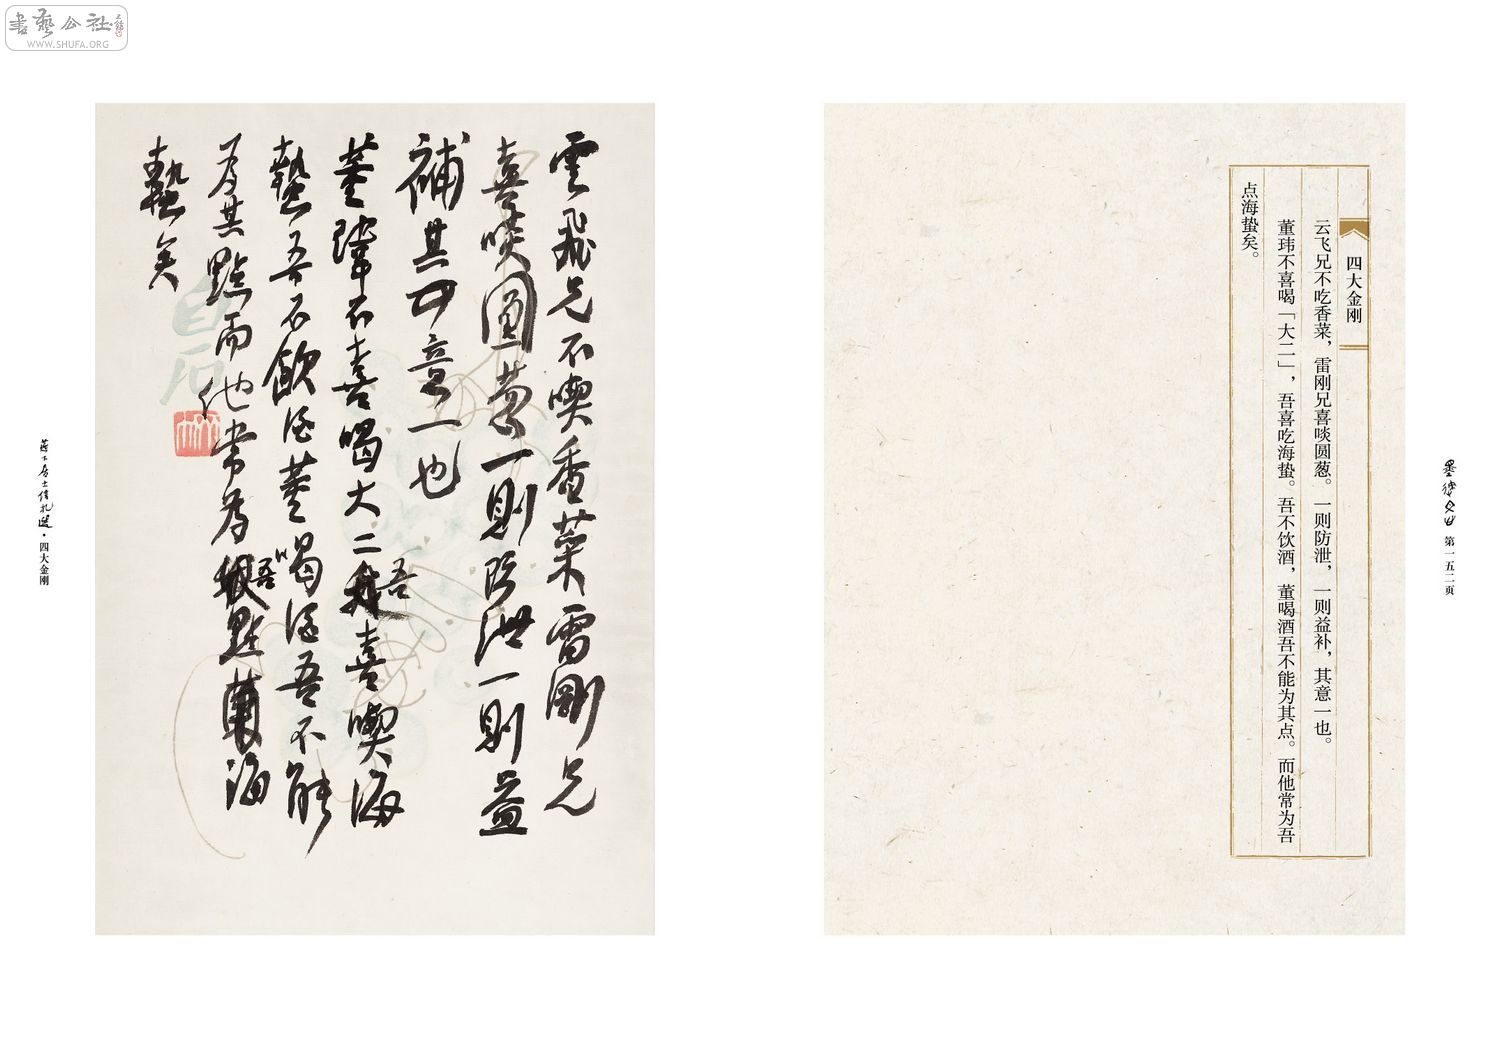 書藝公社
WWW.SHUFA.ORG
四大金刚
云飞兄不吃香菜，雷刚兄喜啖圆葱。一则防泄，一则益补，其意一也。
董玮不喜喝「大二」，吾喜吃海蛰。吾不饮酒，董喝酒吾不能为其点。而他常为吾
点海蛰矣。
第一五二页
雲飛兄不喫香菜雷剛兄
喜啖圓葱一則防泄一則益
補其意一也
董瑋不喜喝大二吾喜喫海
蟄吾不飲酒董喝酒吾不能
为其點而他常为吾點海
蟄矣
白石
四大金刚